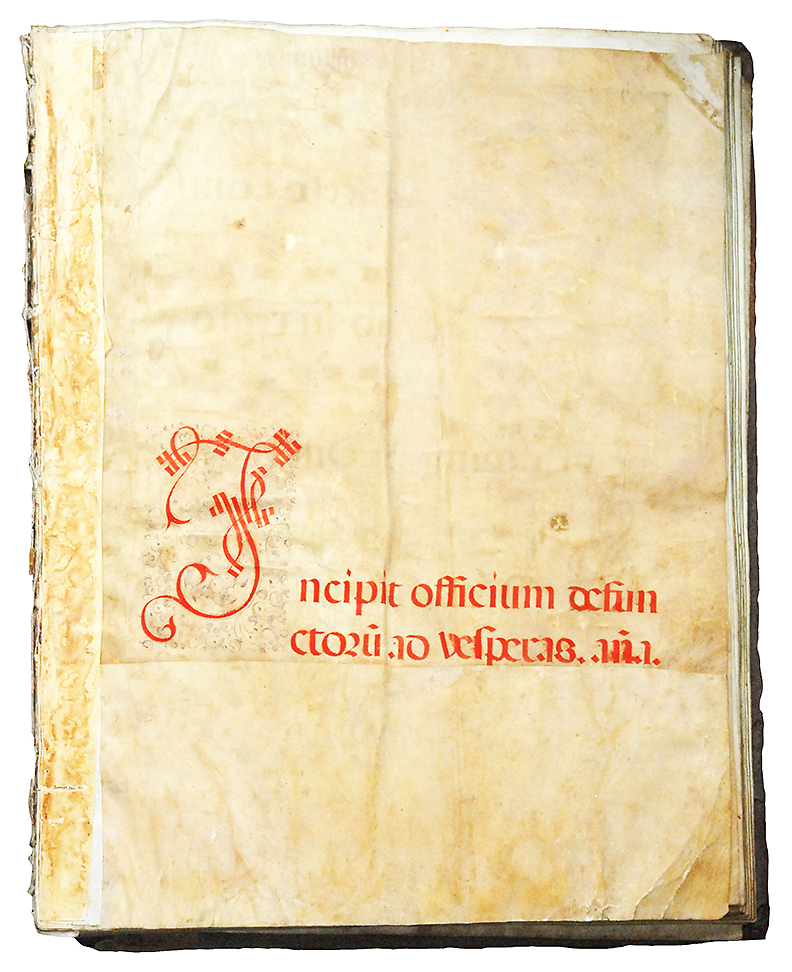 Incipit officium defun
ctorū ad vesperas. aña.